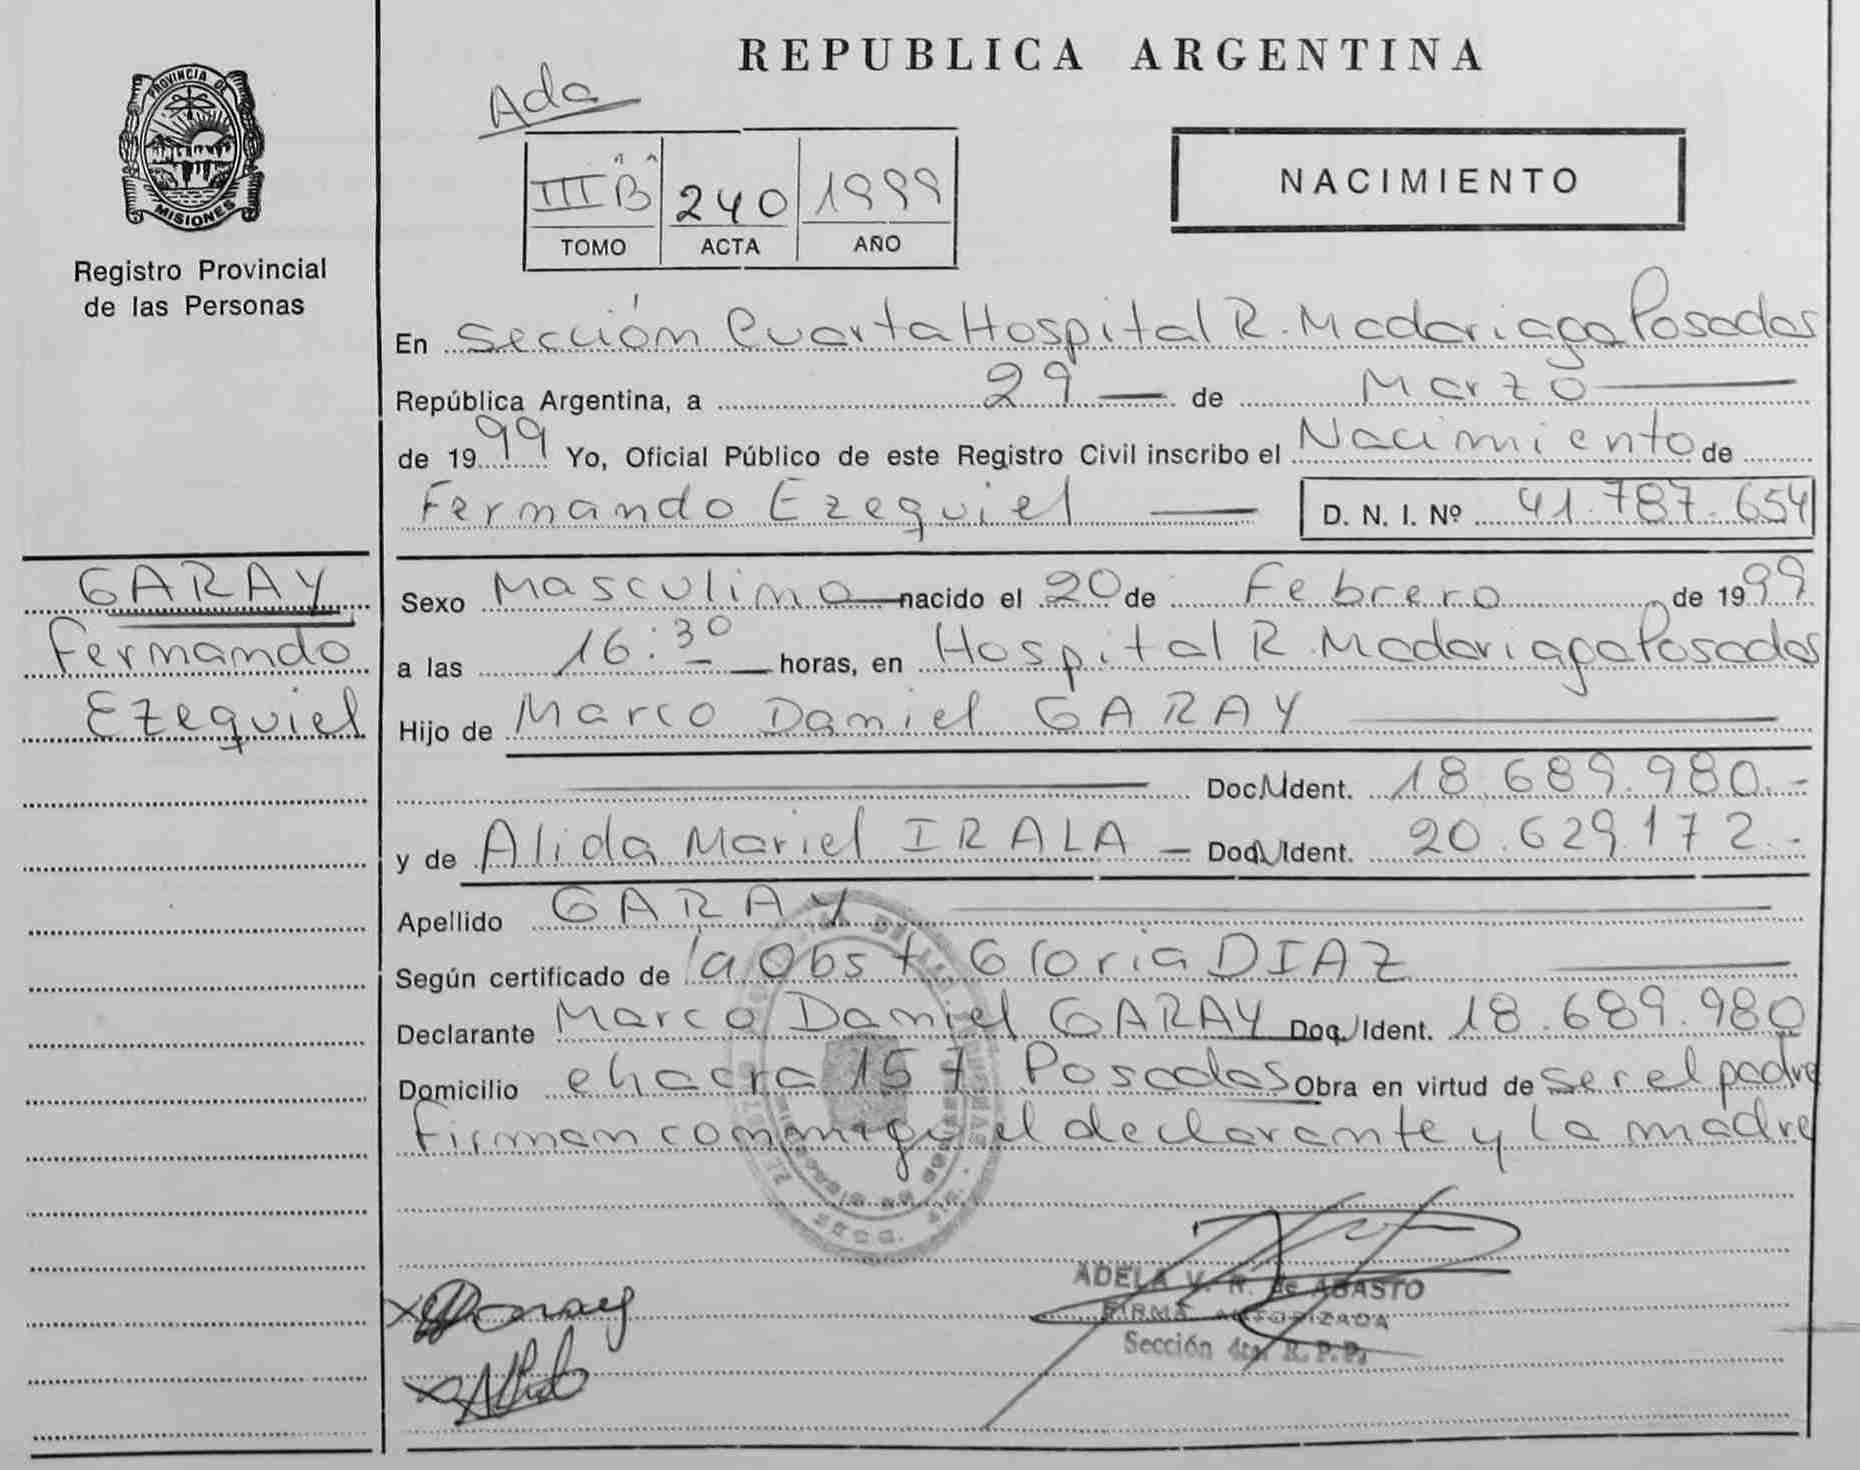 REPUBLICA ARGENTINA
Ada
PROVINCIA DE
MISIONES
Registro Provincial
de las Personas
III B 240 1999
TOMO ACTA AÑO
NACIMIENTO
En Sección Cuarta Hospital R. Madariaga Posadas
República Argentina, a 29 de Marzo
de 1999 Yo, Oficial Público de este Registro Civil inscribo el Nacimiento de
Fernando Ezequiel D. N. I. Nº 41.787.654
GARAY
Fernando
Ezequiel
Sexo Masculino nacido el 20 de Febrero de 1999
a las 16:30 horas, en Hospital R. Madariaga Posadas
Hijo de Marco Daniel GARAY
Doc. Ident. 18.689.980.-
y de Alida Mariel IRALA Doc. Ident. 20.629.172.-
Apellido GARAY
Según certificado de la Obst Gloria DIAZ
Declarante Marco Daniel GARAY Doc. Ident. 18.689.980
Domicilio chacra 157 Posadas Obra en virtud de ser el padre
Firman conmigo el declarante y la madre
ADELA V. R. de ABASTO
FIRMA AUTORIZADA
Sección 4ta. R. P. P.